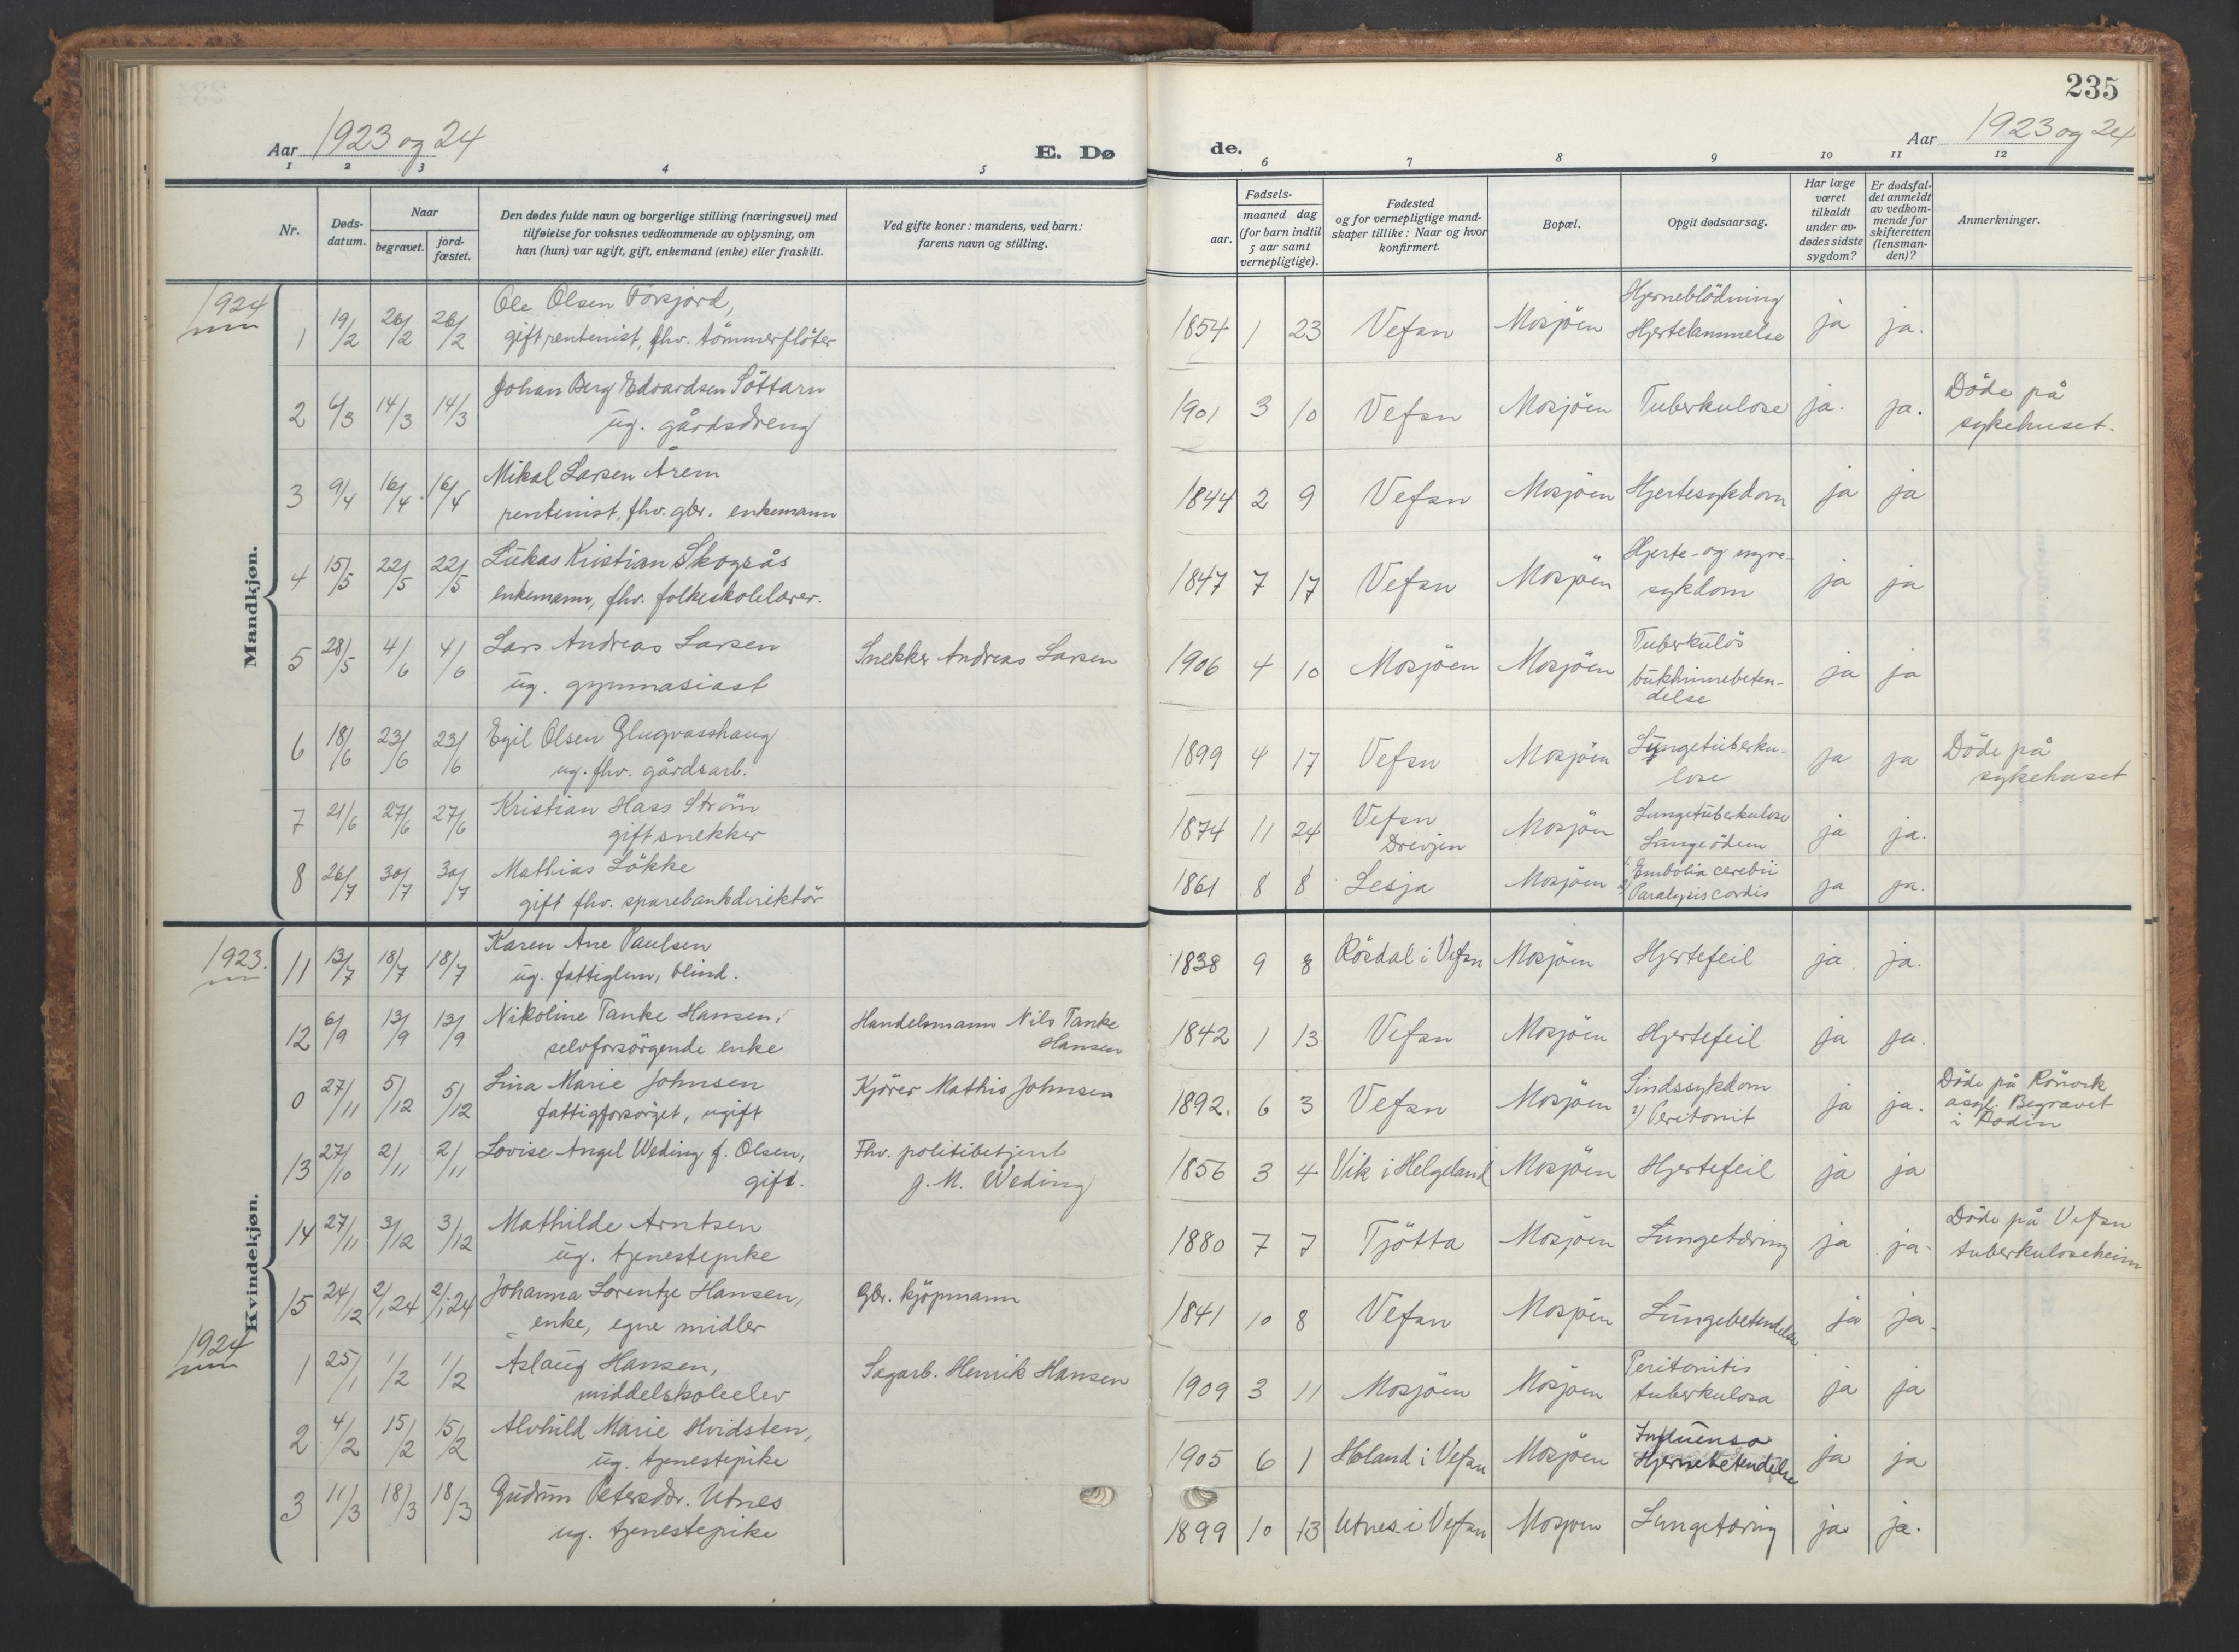 235
Aar 1923 og 24
E. Dø
de.
Aar 1923 og 24
1 2 3 4 5 6 7 8 9 10 11 12
Nr.
Døds-
datum.
Naar
begravet.
jord-
fæstet.
Den dødes fulde navn og borgerlige stilling (næringsvei) med
tilføielse for voksnes vedkommende av oplysning, om
han (hun) var ugift, gift, enkemand (enke) eller fraskilt.
Ved gifte koner: mandens, ved barn:
farens navn og stilling.
Fødsels-
aar.
maaned dag
(for barn indtil
5 aar samt
vernepligtige).
Fødested
og for vernepligtige mand-
skaper tillike: Naar og hvor
konfirmert.
Bopæl.
Opgit dødsaarsag.
Har læge
været
tilkaldt
under av-
dødes sidste
sygdom?
Er dødsfal-
det anmeldt
av vedkom-
mende for
skifteretten
(lensman-
den)?
Anmerkninger.
Mandkjøn.
1924
1 19/2 26/2 26/2 Ole Olsen Forsjord,
gift rentenist, fhv. tømmerfløter
1854 1 23 Vefsn Mosjöen Hjerneblödning
Hjertelammelse
ja ja.
2 6/3 14/3 14/3 Johan Berg Edvardsen Söttarn
ug. gårdsdreng
1901 3 10 Vefsn Mosjöen Tuberkulose ja. ja. Döde på
sykehuset.
3 9/4 16/4 16/4 Mikal Larsen Årem
rentenist, fhv. gbr. enkemann
1844 2 9 Vefsn Mosjöen Hjertesykdom ja ja
4 15/5 22/5 22/5 Lukas Kristian Skogsås
enkemann, fhv. folkeskolelærer.
1847 7 17 Vefsn Mosjöen Hjerte- og nyre-
sykdom
ja ja
5 28/5 4/6 4/6 Lars Andreas Larsen
ug. gymnasiast
Snekker Andreas Larsen
1906 4 10 Mosjöen Mosjöen Tuberkulös
bukhinnebeten-
delse
ja ja
6 18/6 23/6 23/6 Egil Olsen Glugvasshaug
ug. fhv. gårdsarb.
1899 4 17 Vefsn Mosjöen Lungetuberku-
lose
ja ja Döde på
sykehuset
7 21/6 27/6 27/6 Kristian Hass Ström
gift snekker
1874 11 24 Vefsn
Drevjen
Mosjöen Lungetuberkulose
Lungeödem
ja ja.
8 26/7 30/7 30/7 Mathias Lökke
gift fhv. sparebankdirektör
1861 8 8 Lesja Mosjöen 1/ Embolia cerebii
2/ Paralysis cordis
ja ja.
Kvindekjøn.
1923.
11 13/7 18/7 18/7 Karen Ane Paulsen
ug. fattiglem, blind.
1838 9 8 Rösdal i Vefsn Mosjöen Hjertefeil ja. ja.
12 6/9 13/9 13/9 Nikoline Tanke Hansen,
selvforsörgende enke
Handelsmann Nils Tanke
Hansen
1842 1 13 Vefsn Mosjöen Hjertefeil ja ja.
0 27/11 5/12 5/12 Lina Marie Johnsen
fattigforsörget, ugift
Kjörer Mathis Johnsen
1892. 6 3 Vefsn Mosjöen Sindssykdom
2/ Peritonit
ja ja. Döde på Rönvik
asyl. Begravet
i Bodin
13 27/10 2/11 2/11 Lovise Angel Weding f. Olsen,
gift.
Fhv. politibetjent
J. M. Weding
1856 3 4 Vik i Helgeland Mosjöen Hjertefeil ja ja
14 27/11 3/12 3/12 Mathilde Arntsen
ug. tjenestepike
1880 7 7 Tjötta Mosjöen Lungetæring ja ja. Döde på Vefsn
tuberkuloseheim
15 24/12 2/1 24 2/1 24 Johanna Lorentze Hansen,
enke, egne midler
Gbr. kjöpmann
1841 10 8 Vefsn Mosjöen Lungebetendelse ja ja.
1924
1 25/1 1/2 1/2 Aslaug Hansen,
middelskoleelev
Sagarb. Henrik Hansen
1909 3 11 Mosjöen Mosjöen Peritonitis
tuberkulosa
ja ja
2 4/2 15/2 15/2 Alvhild Marie Hvidsten,
ug. tjenestepike
1905 6 1 Holand i Vefsn Mosjöen Influensa
Hjernebetendelse
ja ja
3 11/3 18/3 18/3 Gudrun Petersdr. Utnes
ug. tjenestepike
1899 10 13 Utnes i Vefsn Mosjöen Lungetæring ja ja.